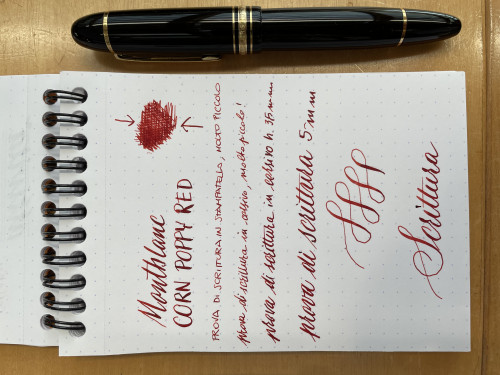 Montblanc
CORN POPPY RED
PROVA DI SCRITTURA IN STAMPATELLO, MOLTO PICCOLO
prova di scrittura in corsivo, molto piccolo!
prova di scrittura in corsivo h. 3,5 mm
prova di scrittura 5 mm
Scrittura